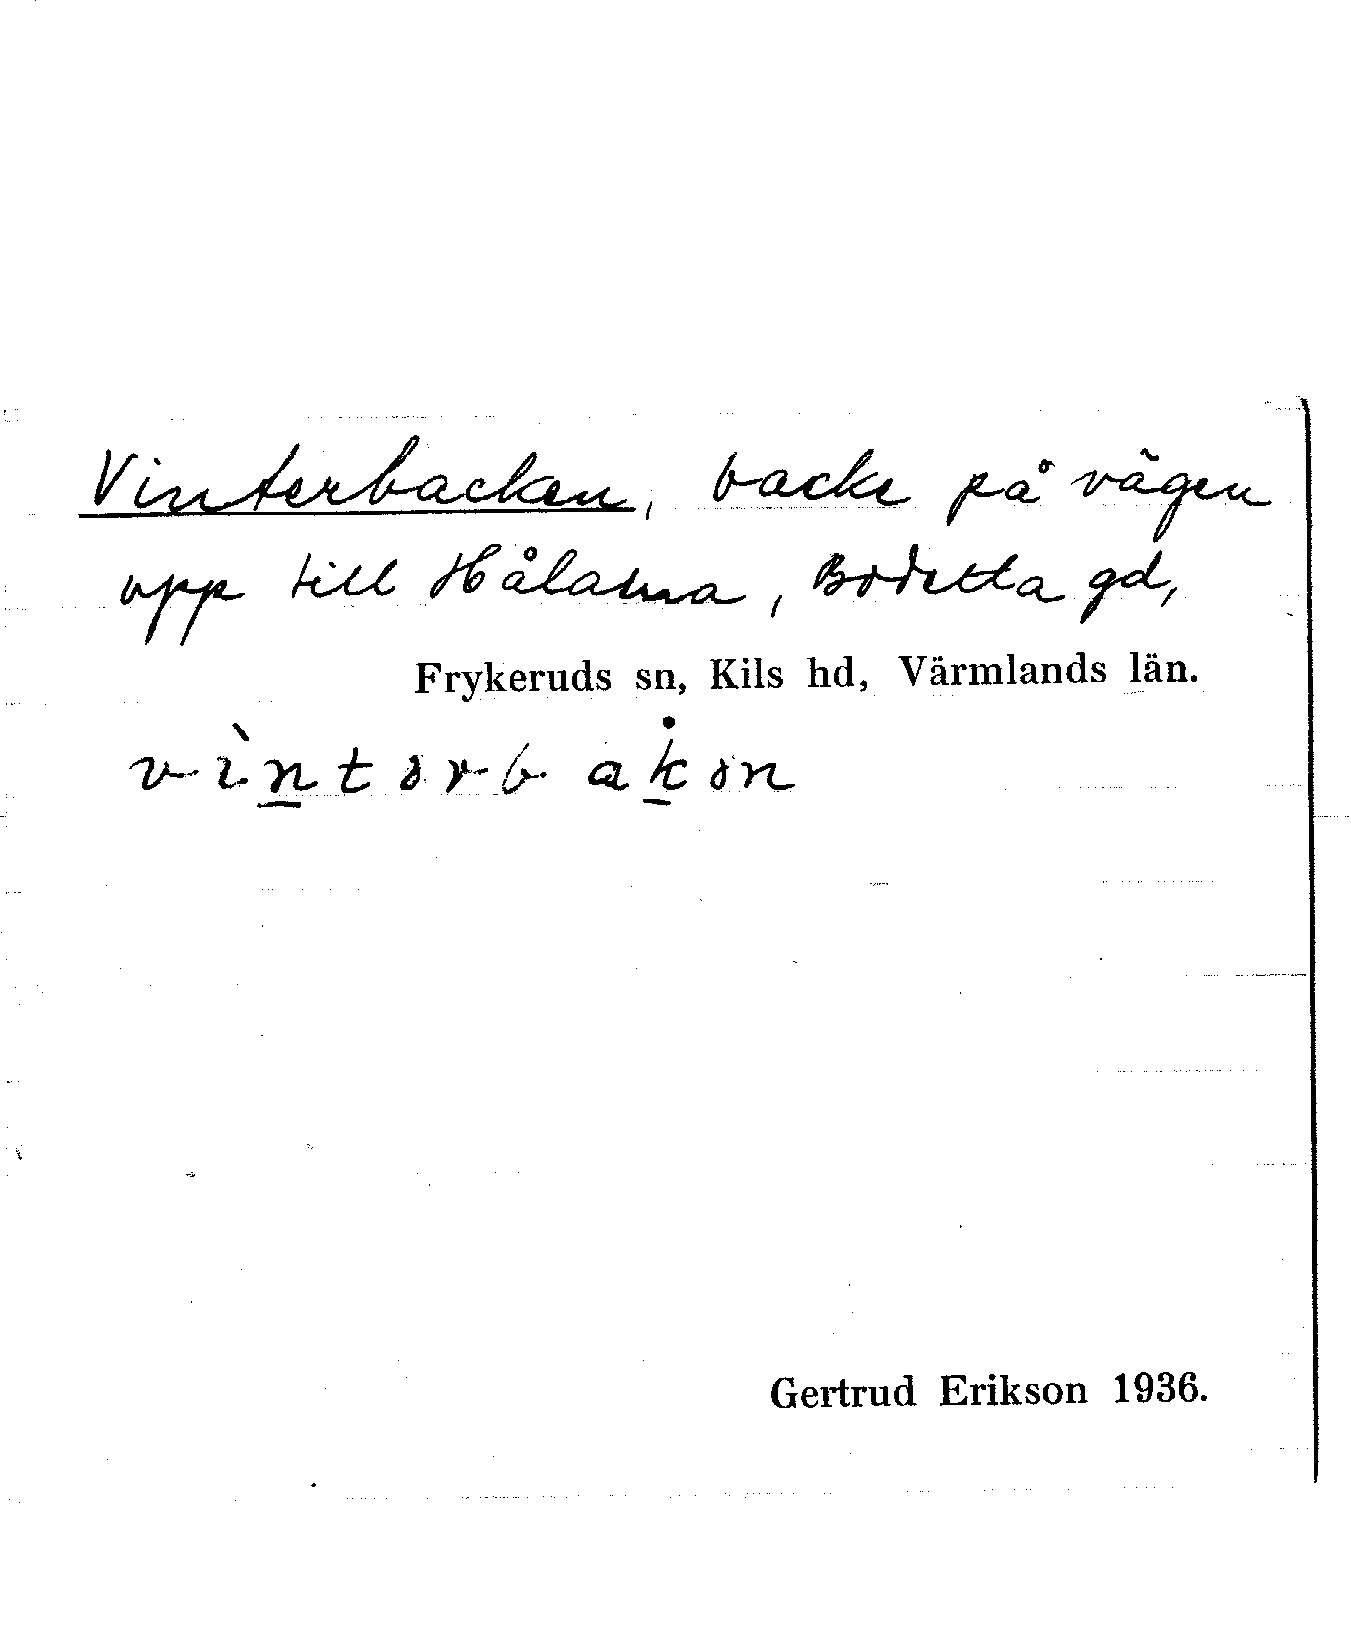 Vinterbacken, backe på vägen
upp till Hålarna, Bodetta gd,
Frykeruds sn, Kils hd, Värmlands län.
vìn̲tərbak̲ən
Gertrud Erikson 1936.